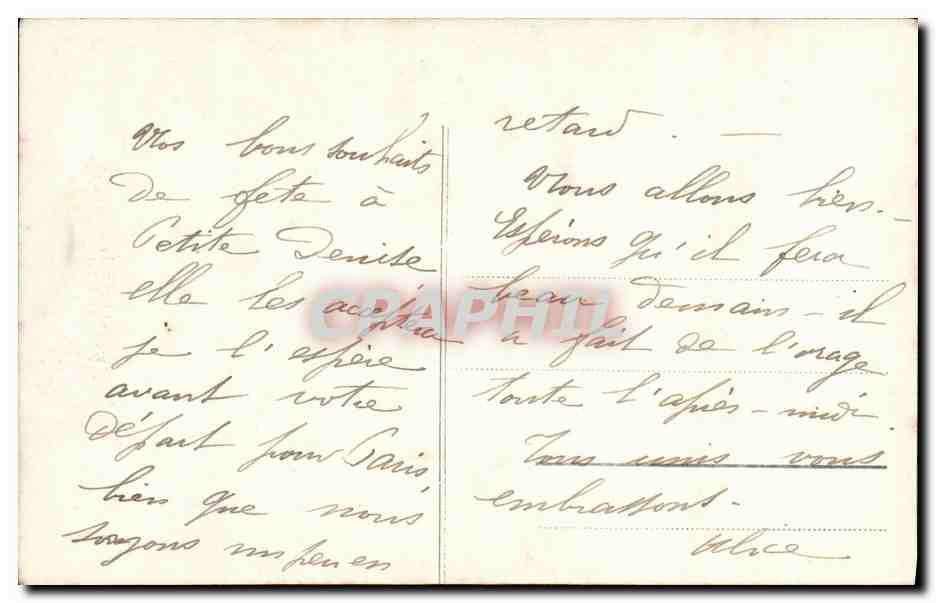 Nos bons souhaits
de fête à
Petite Denise
elle les acceptera
je l'espère
avant votre
départ pour Paris,
bien que nous
soyons un peu en
retard. —
Nous allons bien. -
Espérons qu'il fera
beau demain - il
a fait de l'orage
toute l'après-midi.
Tous unis vous
embrassons -
Alice
CPAPHIL